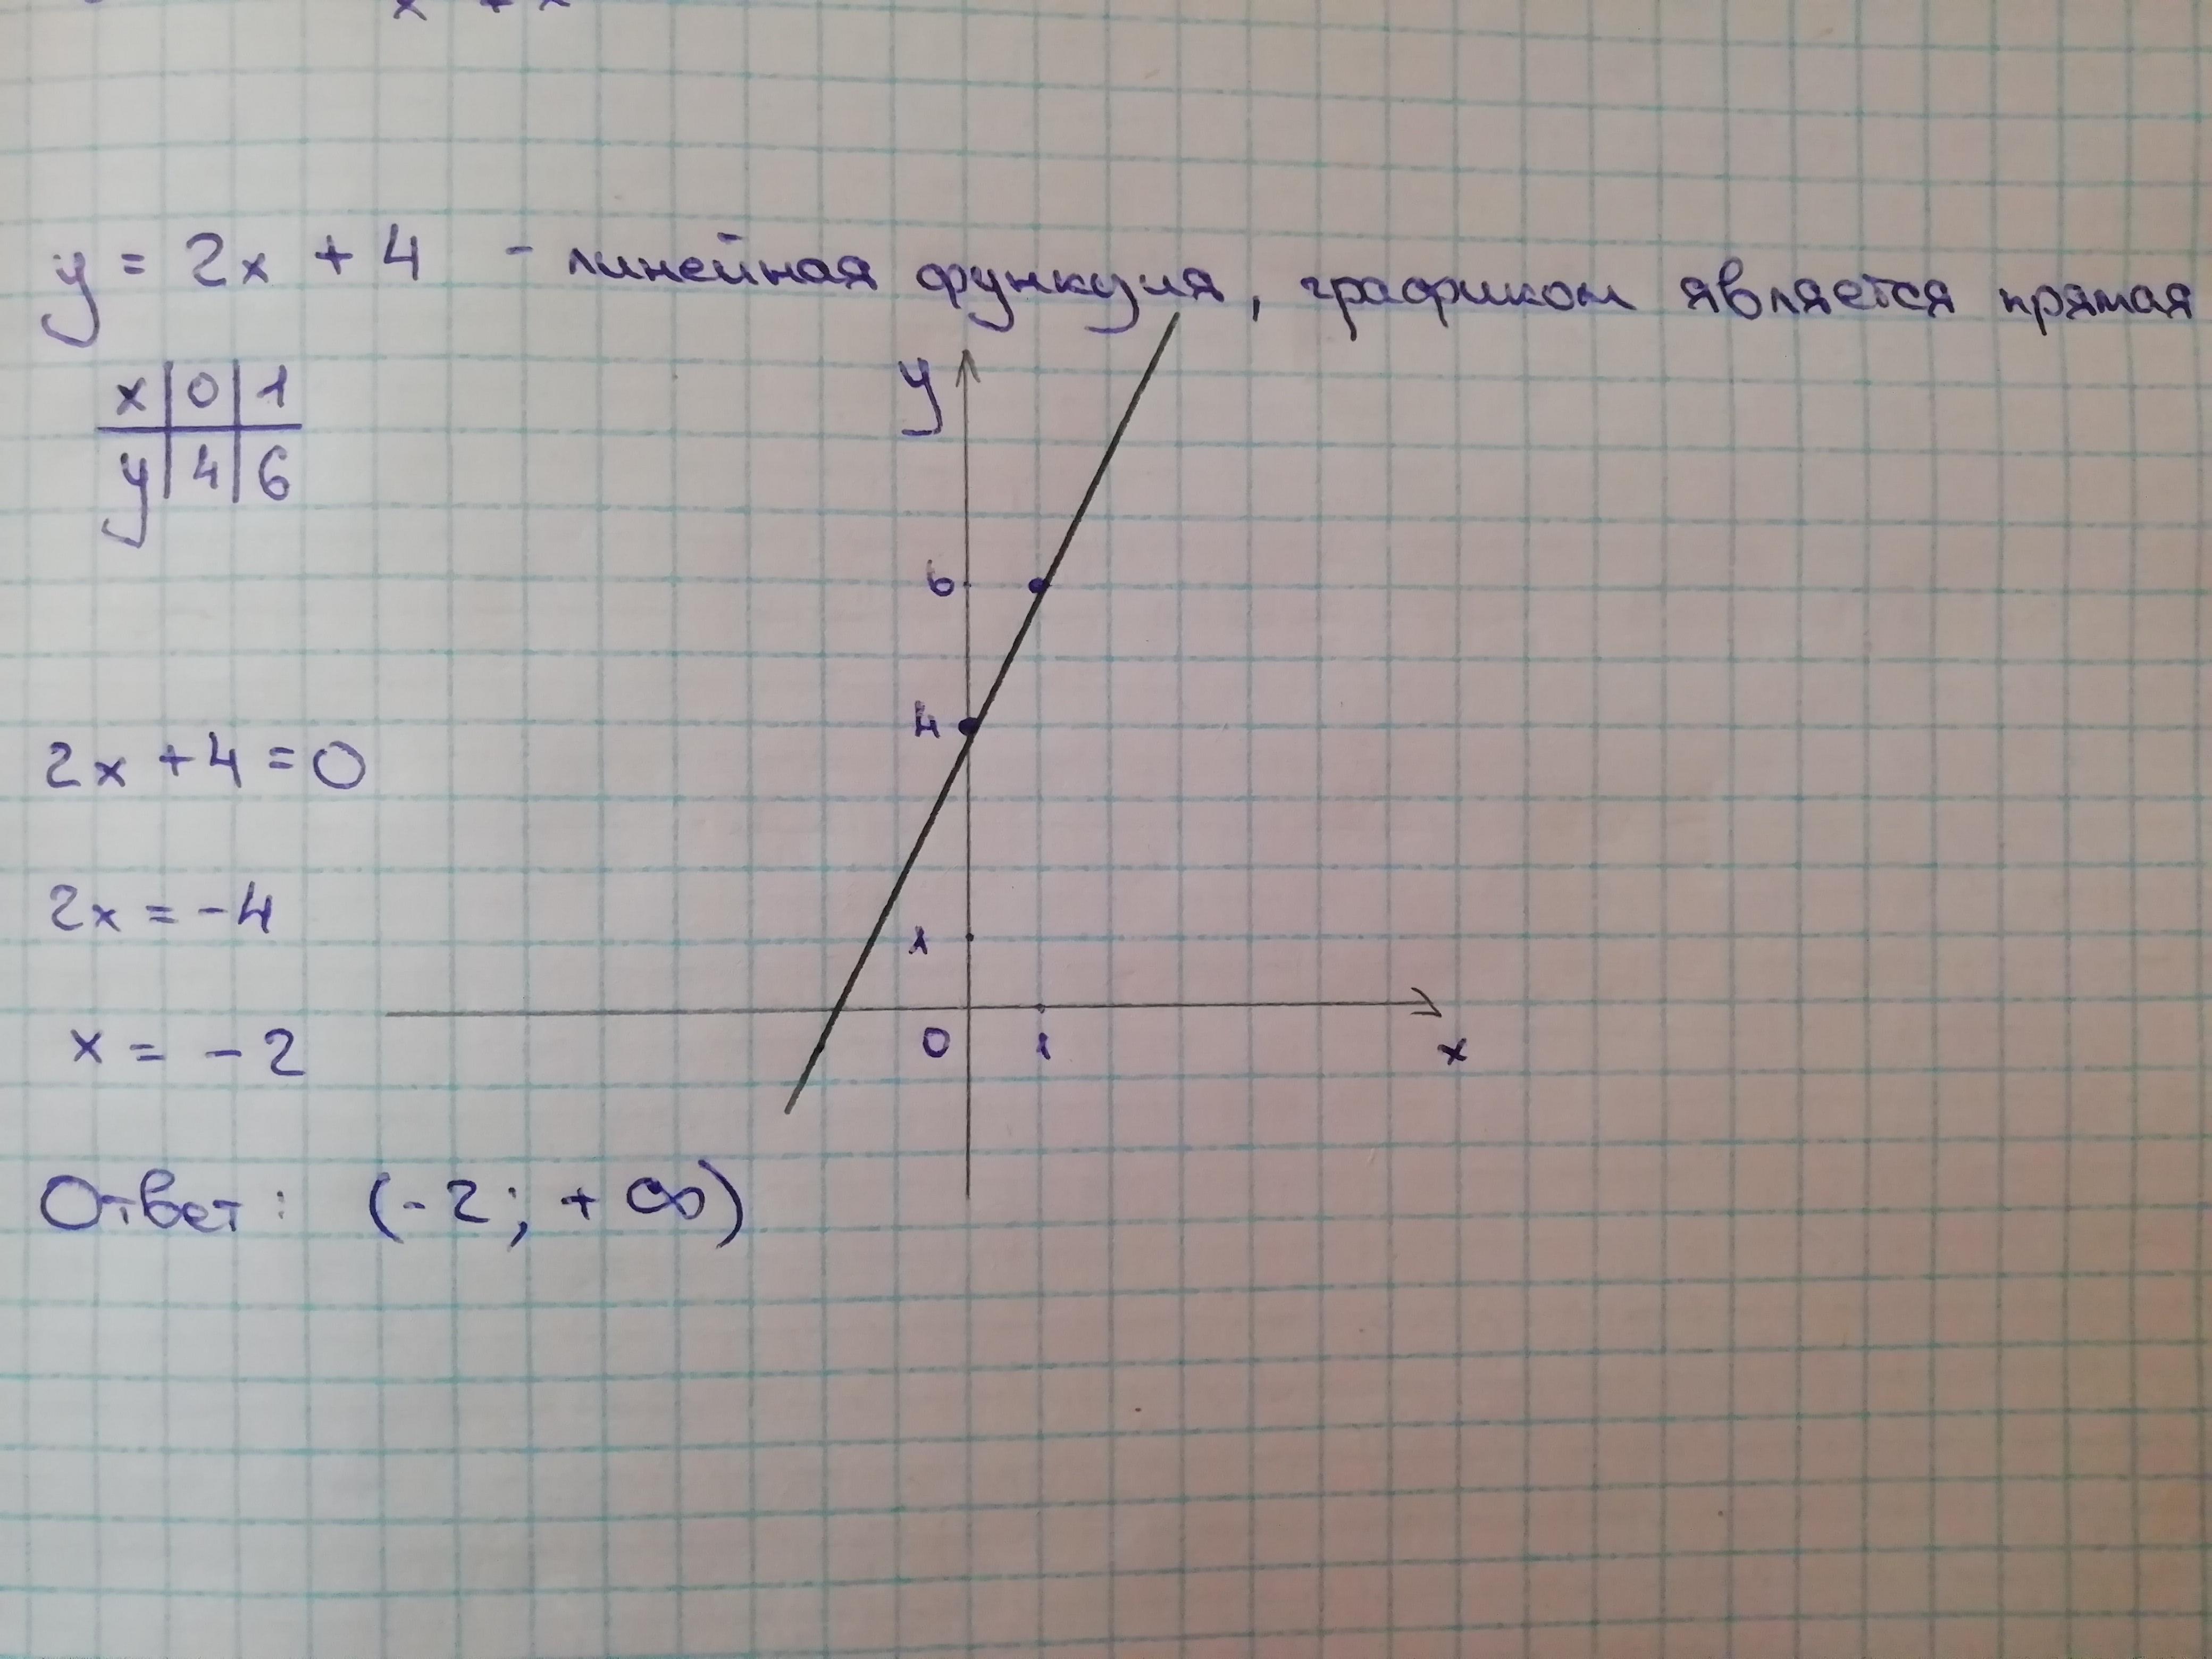 y = 2x + 4 - линейная функция, графиком является прямая
x 0 1
y 4 6
y
6
4
2x + 4 = 0
2x = -4
1
x = - 2
0 1 x
Ответ: (-2; + ∞)